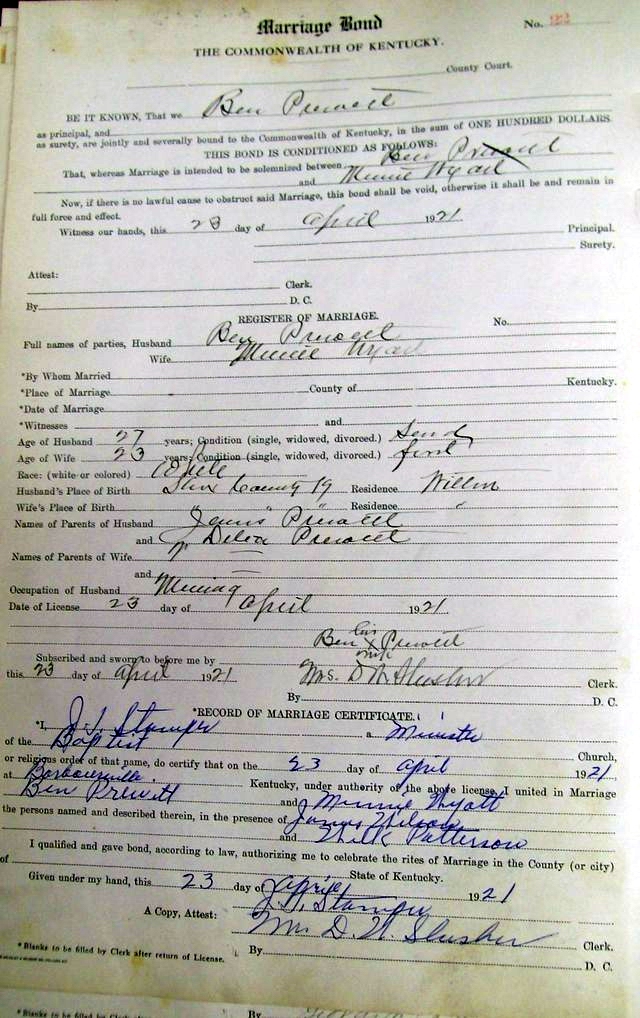 Marriage Bond
No. 22
THE COMMONWEALTH OF KENTUCKY.
County Court.
BE IT KNOWN, That we Ben Prewett
as principal, and
as surety, are jointly and severally bound to the Commonwealth of Kentucky, in the sum of ONE HUNDRED DOLLARS.
THIS BOND IS CONDITIONED AS FOLLOWS:
That, whereas Marriage is intended to be solemnized between Ben Prewett
and Minnie Wyatt
Now, if there is no lawful cause to obstruct said Marriage, this bond shall be void, otherwise it shall be and remain in
full force and effect.
Witness our hands, this 23 day of April 1921 Principal.
Surety.
Attest:
Clerk.
By D. C.
REGISTER OF MARRIAGE. No.
Full names of parties, Husband Ben Prewett
Wife Minnie Wyatt
*By Whom Married
*Place of Marriage County of Kentucky.
*Date of Marriage
*Witnesses and
Age of Husband 27 years; Condition (single, widowed, divorced.) Second
Age of Wife 23 years; Condition (single, widowed, divorced.) first
Race: (white or colored) White
Husband's Place of Birth Knox County Ky Residence
Wife's Place of Birth " Residence "
Names of Parents of Husband Prewett
and Prewett
Names of Parents of Wife
and
Occupation of Husband Mining
Date of License 23 day of April 1921
Ben his x mark Prewett
Subscribed and sworn to before me by
this 23 day of April 1921 Mrs. D. W. Slusher Clerk.
By D. C.
*RECORD OF MARRIAGE CERTIFICATE.
*I, J. J. Stamper a Minister
of the Baptist Church,
or religious order of that name, do certify that on the 23 day of April 1921
at Barbourville. Kentucky, under authority of the above license, I united in Marriage
Ben Prewitt and Minnie Wyatt
the persons named and described therein, in the presence of James Wilson
and Patterson
I qualified and gave bond, according to law, authorizing me to celebrate the rites of Marriage in the County (or city)
of State of Kentucky.
Given under my hand, this 23 day of April 1921
J. J. Stamper
A Copy, Attest: Mrs D. W. Slusher Clerk.
*Blanks to be filled by Clerk after return of License. By D. C.
*Blanks to be filled by Clerk
By